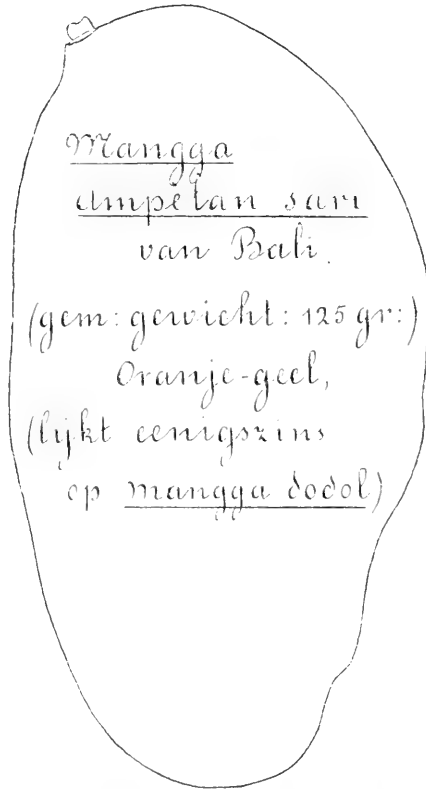 Mangga
ampĕlan sari
van Bali.
(gem: gewicht: 125 gr:)
Oranje-geel,
(lijkt eenigszins
op mangga dodol)